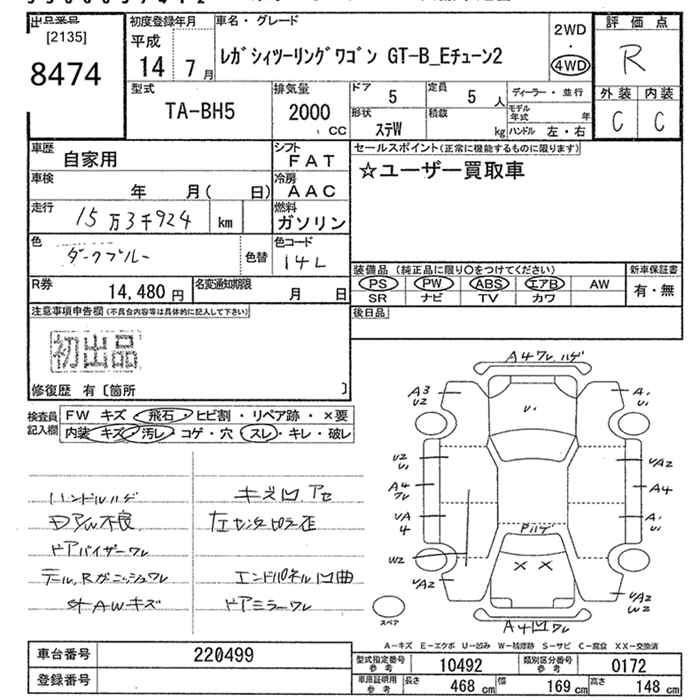 出品番号
[2135]
8474
初度登録年月
平成
14 7月
車名・グレード
レガシィツーリングワゴン GT-B_Eチューン2
2WD
・
4WD
評価点
R
外装 内装
C C
型式
TA-BH5
排気量
2000
CC
ドア 5
定員 5 人
形状 ステW
積載 kg
ディーラー・並行
モデル年式 年
ハンドル 左・右
車歴 自家用
シフト FAT
車検 年 月( 日)
冷房 AAC
走行 15万3千924 km
燃料 ガソリン
色 ダークブルー
色替
色コード 14L
R券 14,480円
名変通知期限 月 日
セールスポイント(正常に機能するものに限ります)
☆ユーザー買取車
装備品 (純正品に限り○をつけてください)
PS PW ABS エアB AW
SR ナビ TV カワ
新車保証書
有・無
後日品
注意事項申告欄(不具合内容等は具体的に記入して下さい)
初出品
修復歴 有〔箇所 〕
検査員記入欄
FW キズ・飛石・ヒビ割・リペア跡・×要
内装 キズ・汚レ・コゲ・穴・スレ・キレ・破レ
ハンドルハゲ
キズ凹アセ
PアW不良
左センタピラ歪
ドアバイザーワレ
テール,Rガーニッシュワレ
エンドパネル凹曲
社AWキズ
ドアミラーワレ
A4ワレ ハゲ
A3
U2
A1
U1
U1
U2
U1
UA2
A4
ワレ
A4
UA
4
A1
U1
Pハゲ
W2
××
UA2
UA2
W2
スペア
A4凹ワレ
A-キズ E-エクボ U-凹み W-補修跡 S-サビ C-腐食 XX-交換済
車台番号 220499
登録番号
型式指定番号 参考 10492
類別区分番号 参考 0172
車庫証明用 参考 長さ 468 cm 幅 169 cm 高さ 148 cm